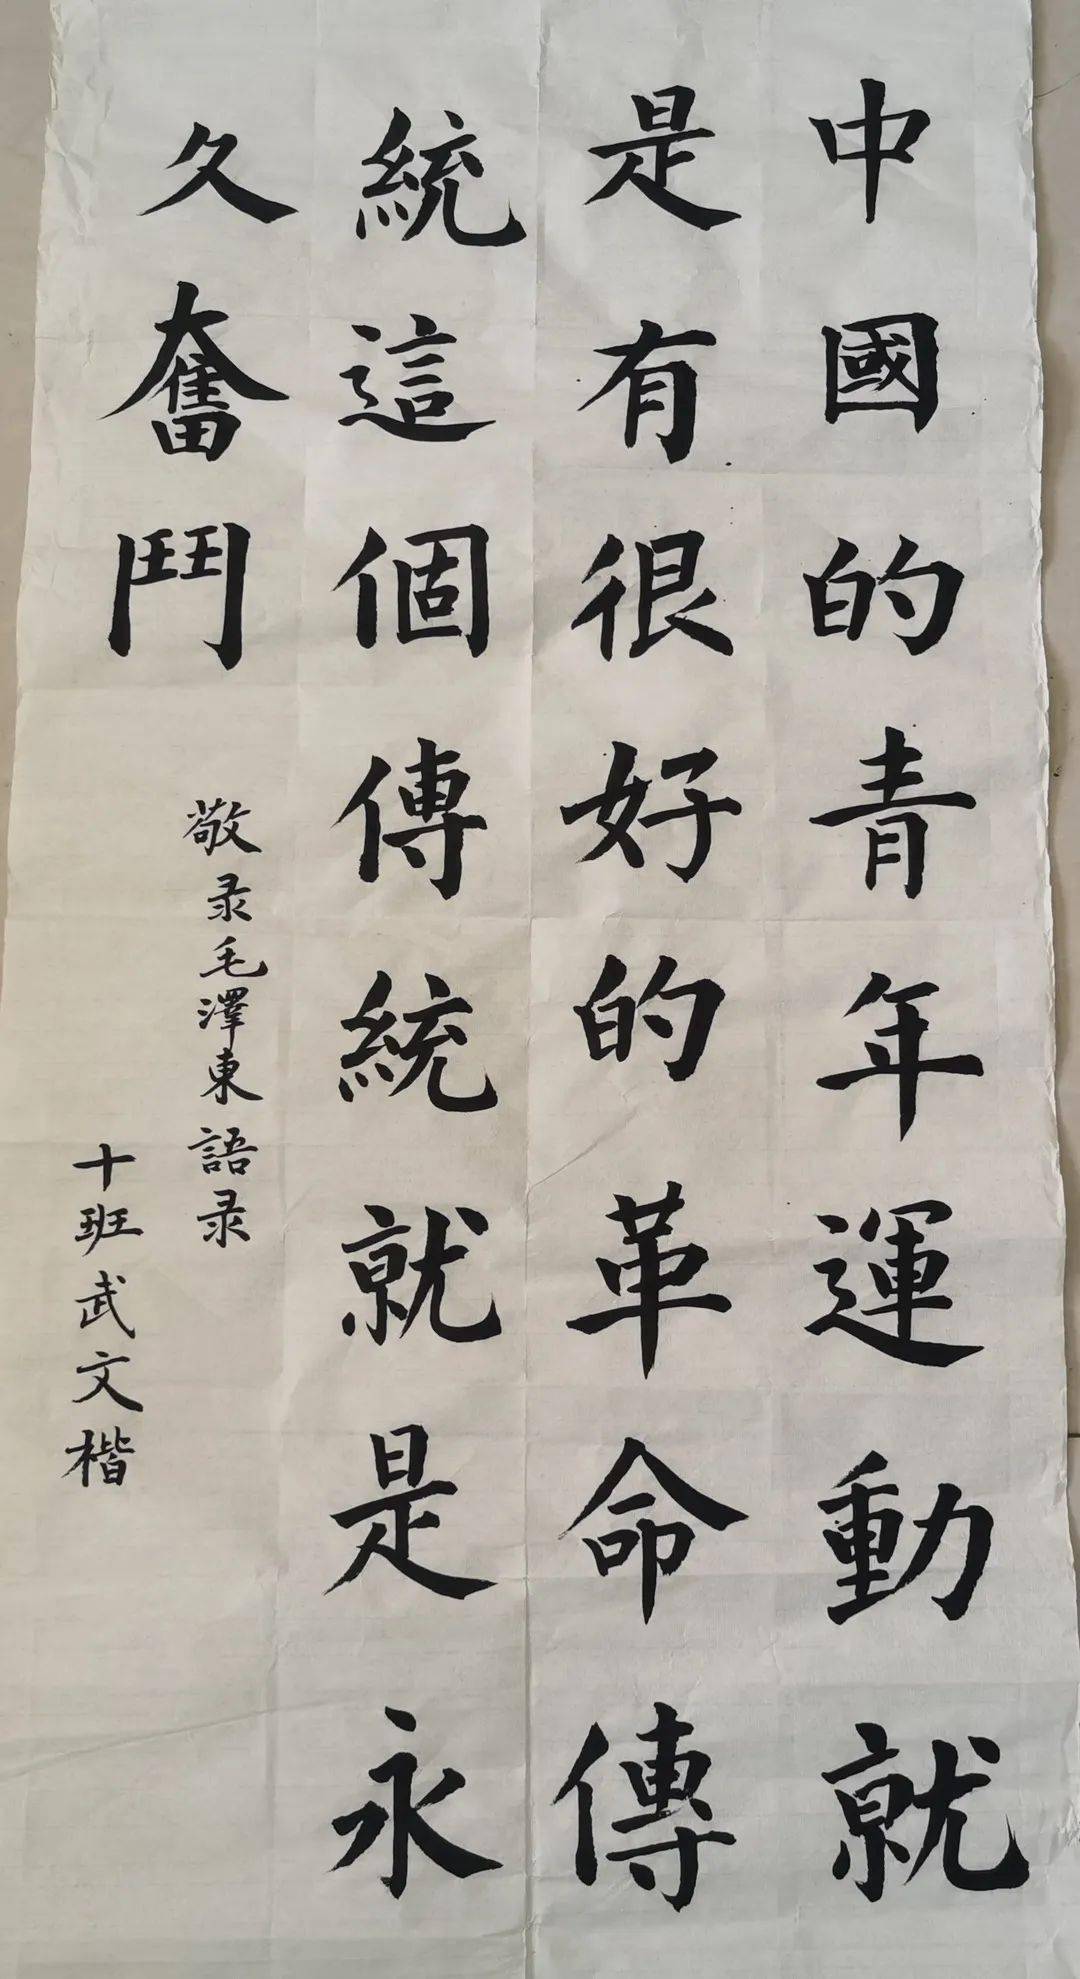 中國的青年運動就
是有很好的革命傳
統這個傳統就是永
久奮鬥
敬录毛澤東語录
十班武文楷